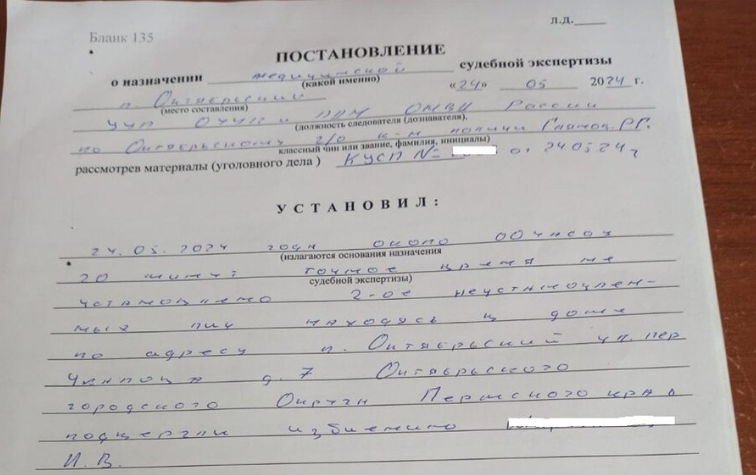 Л.Д.
Бланк 135
ПОСТАНОВЛЕНИЕ
о назначении медицинской судебной экспертизы
(какой именно)
п. Октябрьский «24» 05 2024 г.
(место составления)
УУП ОУУП и ПДН ОМВД России
(должность следователя (дознавателя),
по Октябрьскому г/о к-н полиции Гламоз. Р.Г.
классный чин или звание, фамилия, инициалы)
рассмотрев материалы (уголовного дела ) КУСП № от 24.05.24г
УСТАНОВИЛ:
24.05.2024 года около 00 часов
(излагаются основания назначения
20 минут точное время не
судебной экспертизы)
установлено 2-ое неустановлен-
ных лиц находясь в доме
по адресу п. Октябрьский ул. пер
д. 7 Октябрьского
городского Округа Пермского края
подвергли избиению
И.В.